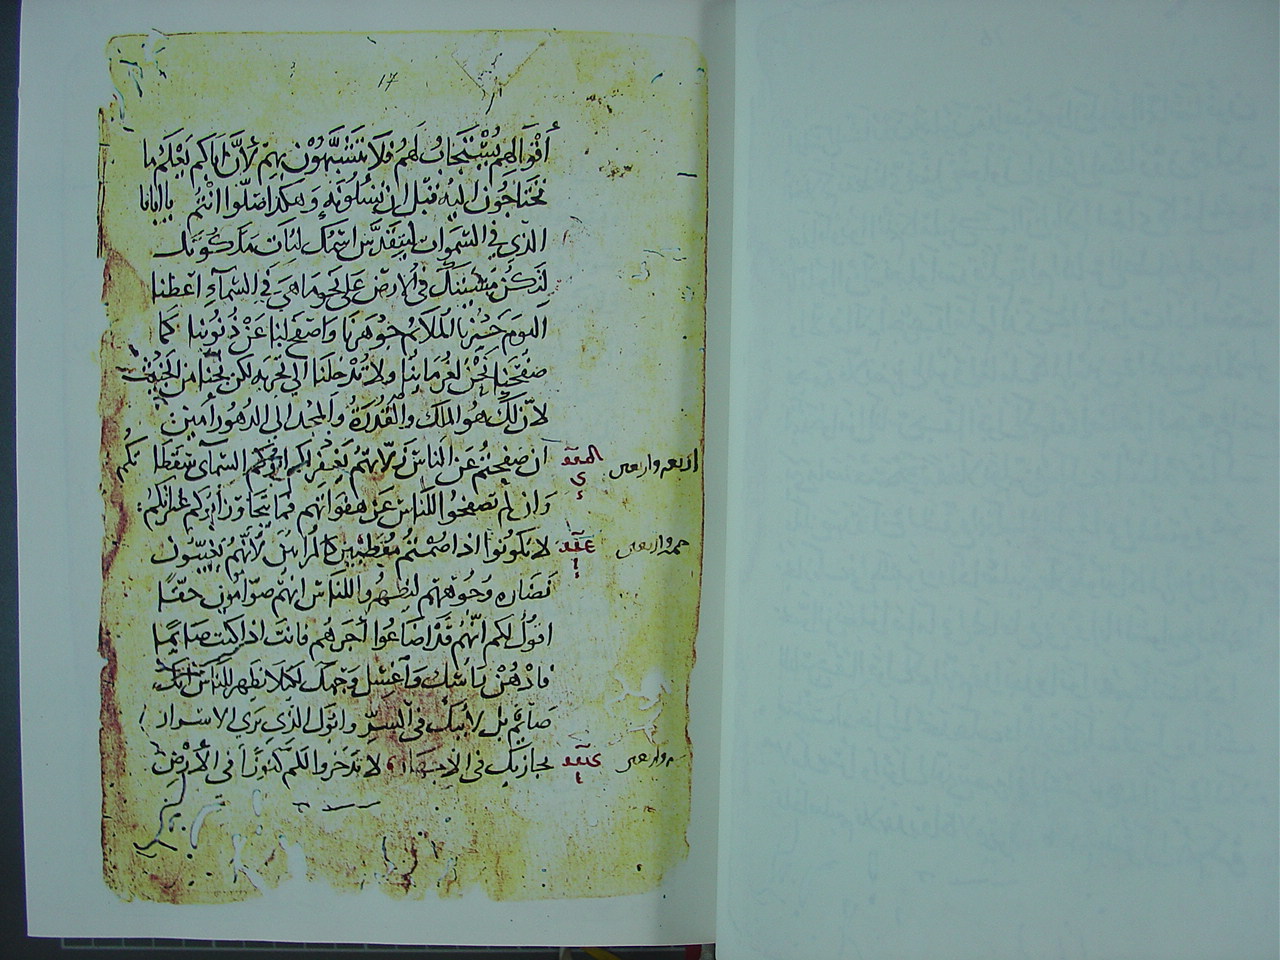 ١٧
أقوالهم يُستجاب لهم فلا تتشبّهون بهم لأنّ اباكم يعلم ما
تحتاجون اليه قبل ان تسلونه وهكذا صلّوا انتم يا ابانا
الذي في السموات ليتقدّس اسمك لتات ملكوتك
لتكن مشيئتك في الارض على نحو ما هي في السماء اعطنا
اليوم خبزنا جوهرنا واصفح لنا عن ذنوبنا كما
صفحنا نحن لغرمائنا ولا تدخلنا الى تجربه لكن نجنا من الخبيث
لانّ لك هو الملك والقدرة والمجد الى الدهور امين
ان صفحتم عن الناس زلاتهم يغفر لكم ابوكم السمائى سقطاتكم
اربعه واربعين
وان لم تصفحوا للناس عن هفواتهم فما يتجاوز ابوكم عثراتكم
لا تكونوا اذا صمتم مقطبين كالمرائين لأنهم يغيّبون
خمسة واربعين
نضاره وجوههم ليظهروا للناس انهم صوّامون حقًا
اقول لكم انهم قد اضاعوا أجرهم فانت اذا كنت صايمًا
فادهن راسك وأغسل وجهك لكيلا يظهر للناس انك
صايم بل لأبيك في السرّ وابوك الذي يرى الاسرار
يجازيك في الاجهار لا تدخروا لكم كنوزًا في الأرض
واربعين